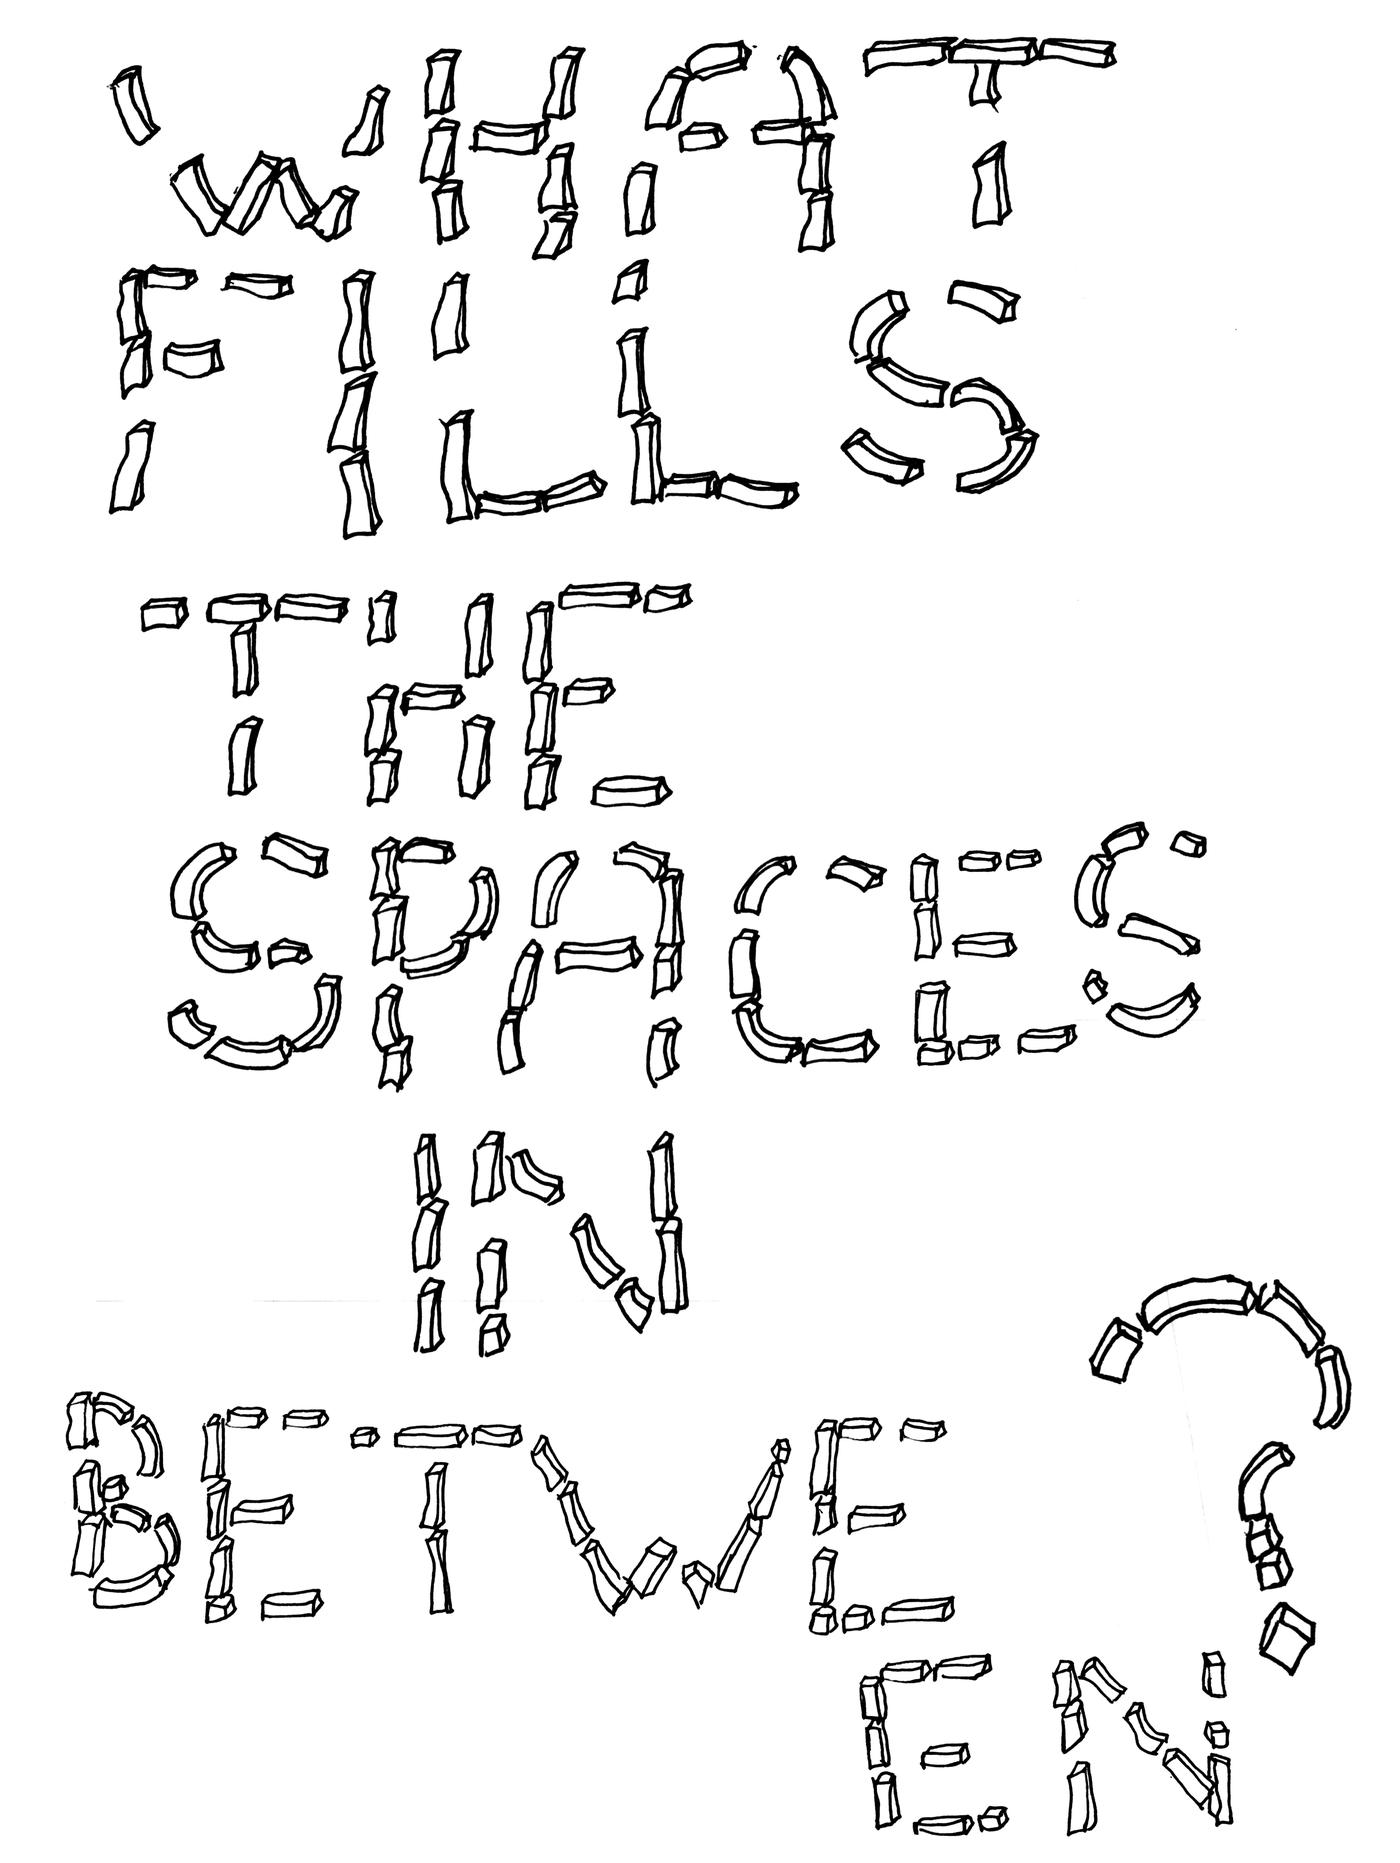 WHAT
FILLS
THE
SPACES
IN
BETWE
EN?